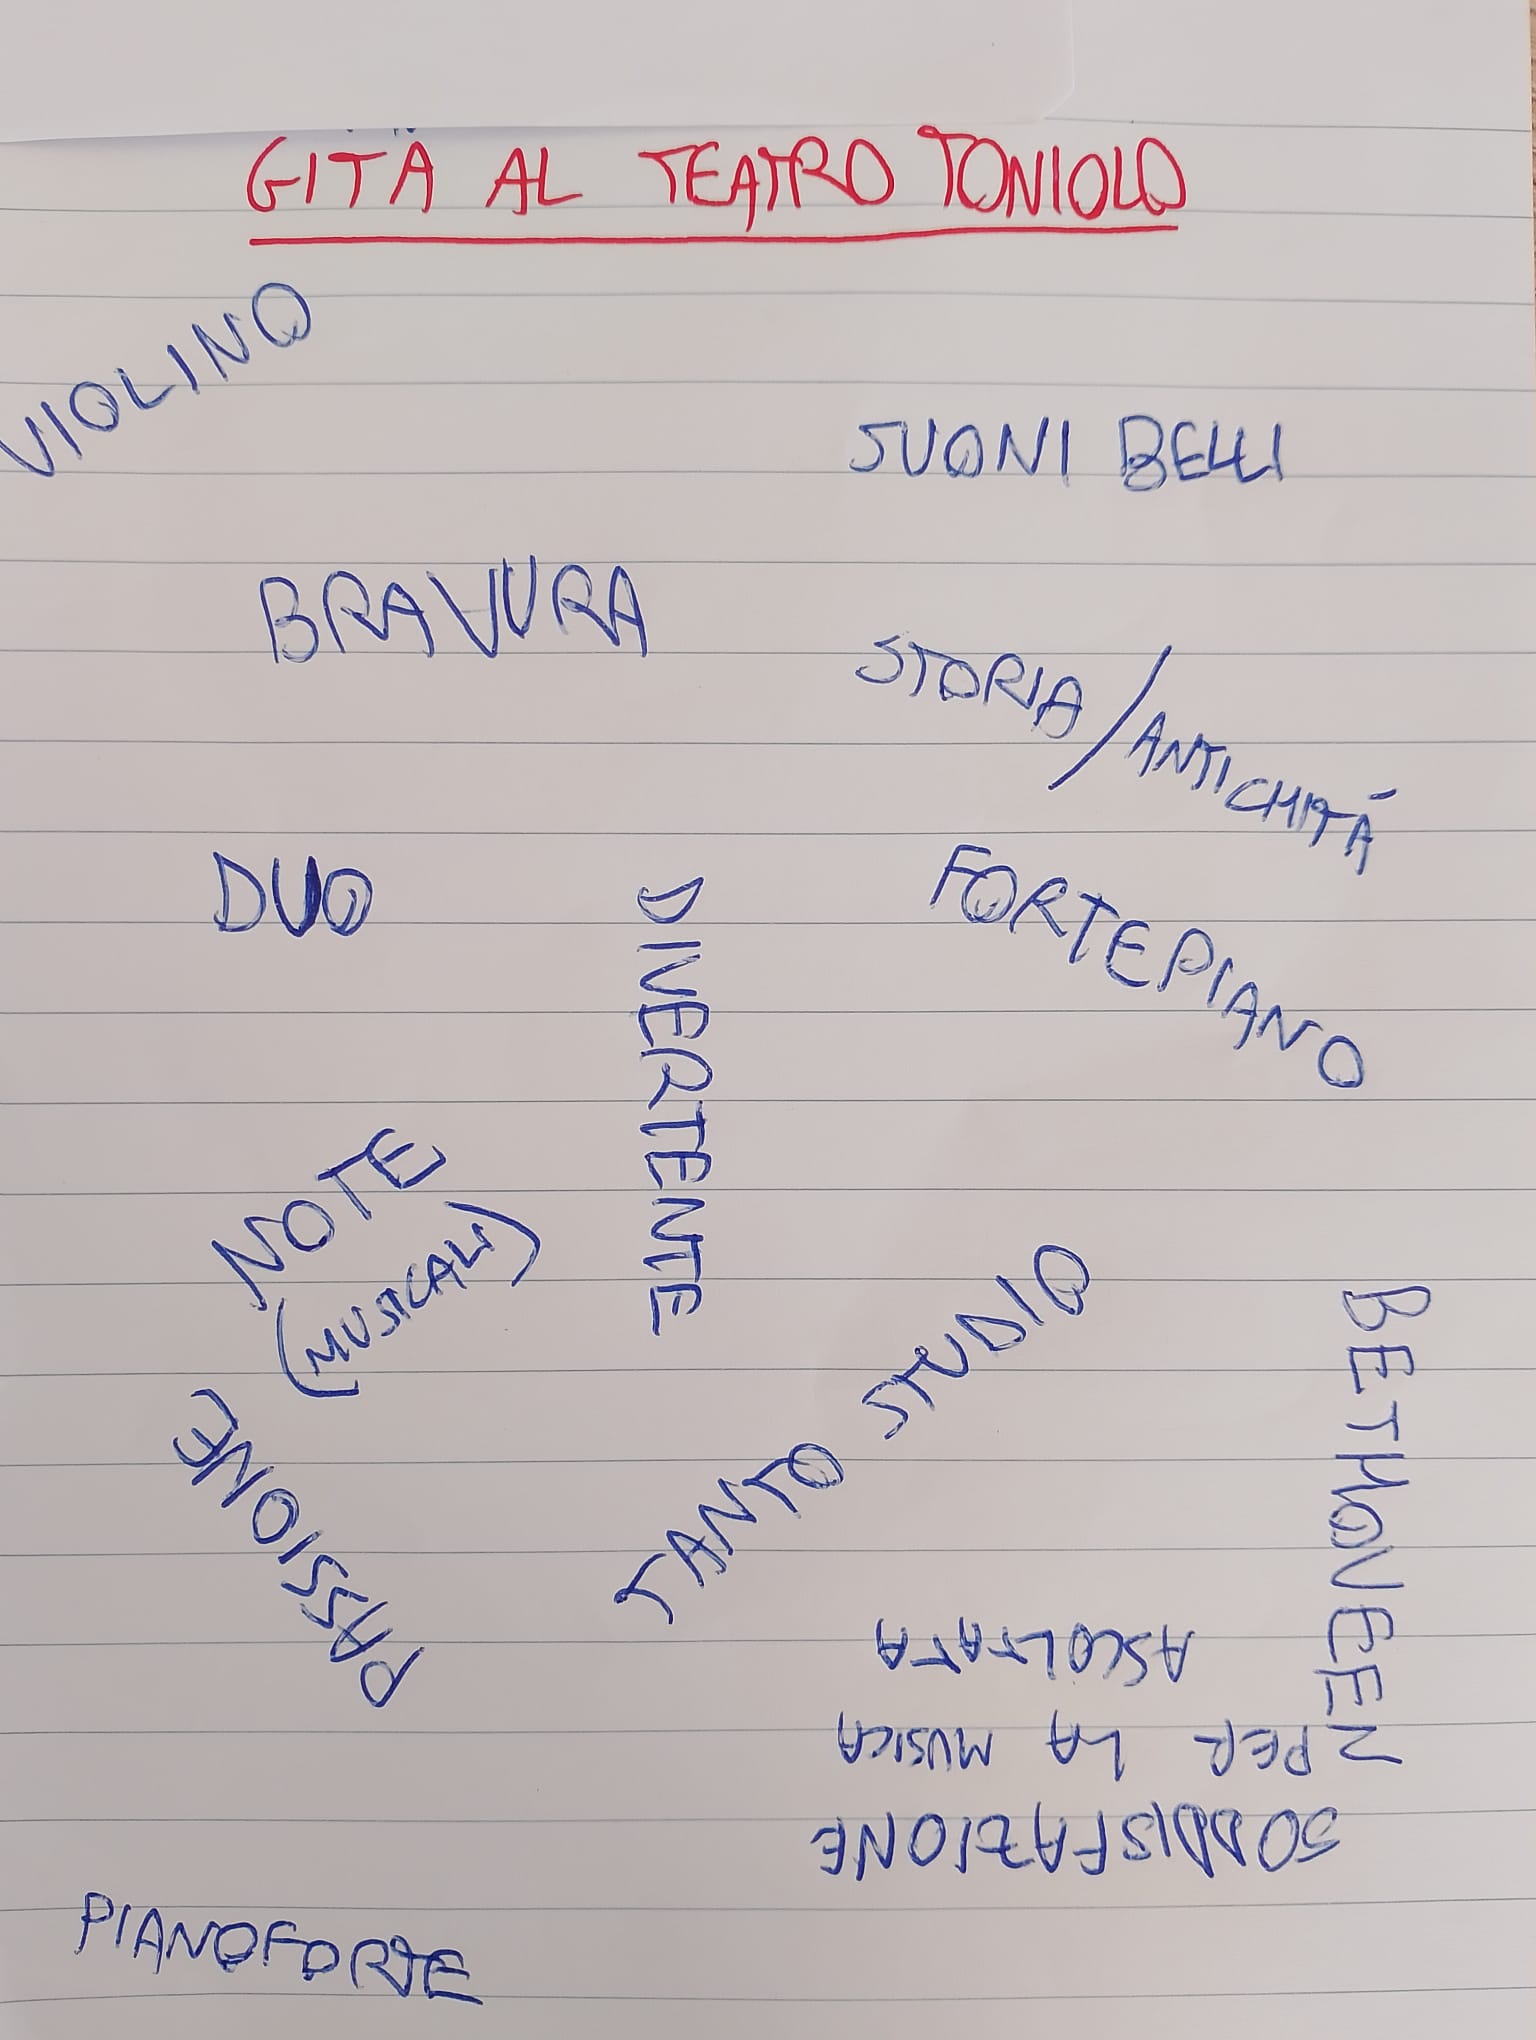 GITA AL TEATRO TONIOLO
VIOLINO
SUONI BELLI
BRAVURA
STORIA/ANTICHITÁ
DUO
FORTEPIANO
DIVERTENTE
NOTE
(MUSICALI)
TANTO STUDIO
BETHOVEEN
PASSIONE
SODDISFAZIONE
PER LA MUSICA
ASCOLTATA
PIANOFORTE